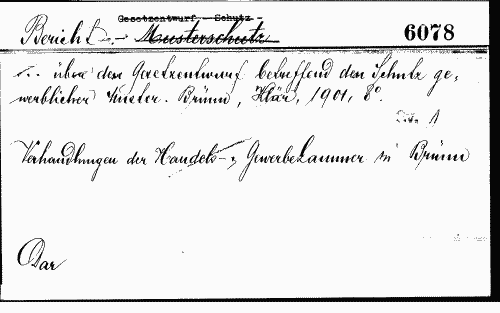 Gesetzentwurf - Schutz -
Bericht - Musterschutz 6078
... über den Gesetzentwurf betreffend den Schutz ge-
werblicher Muster. Brünn, 1901, 8°.
1
Verhandlungen der Handels- u. Gewerbekammer in Brünn
Dar